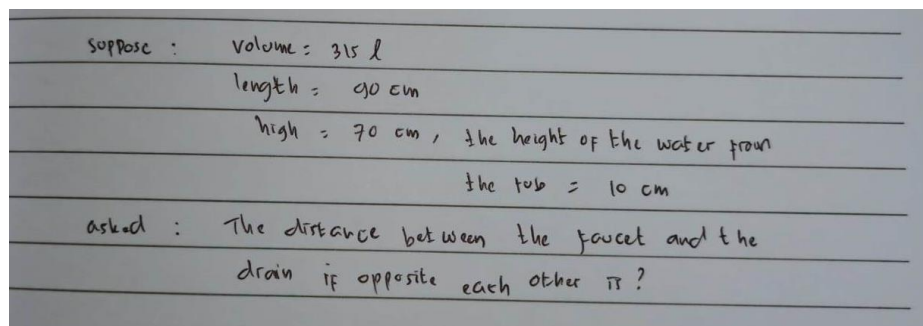 suppose : volume = 315 l
length = 90 cm
high = 70 cm, the height of the water from
the tub = 10 cm
asked : The distance between the faucet and the
drain if opposite each other is?